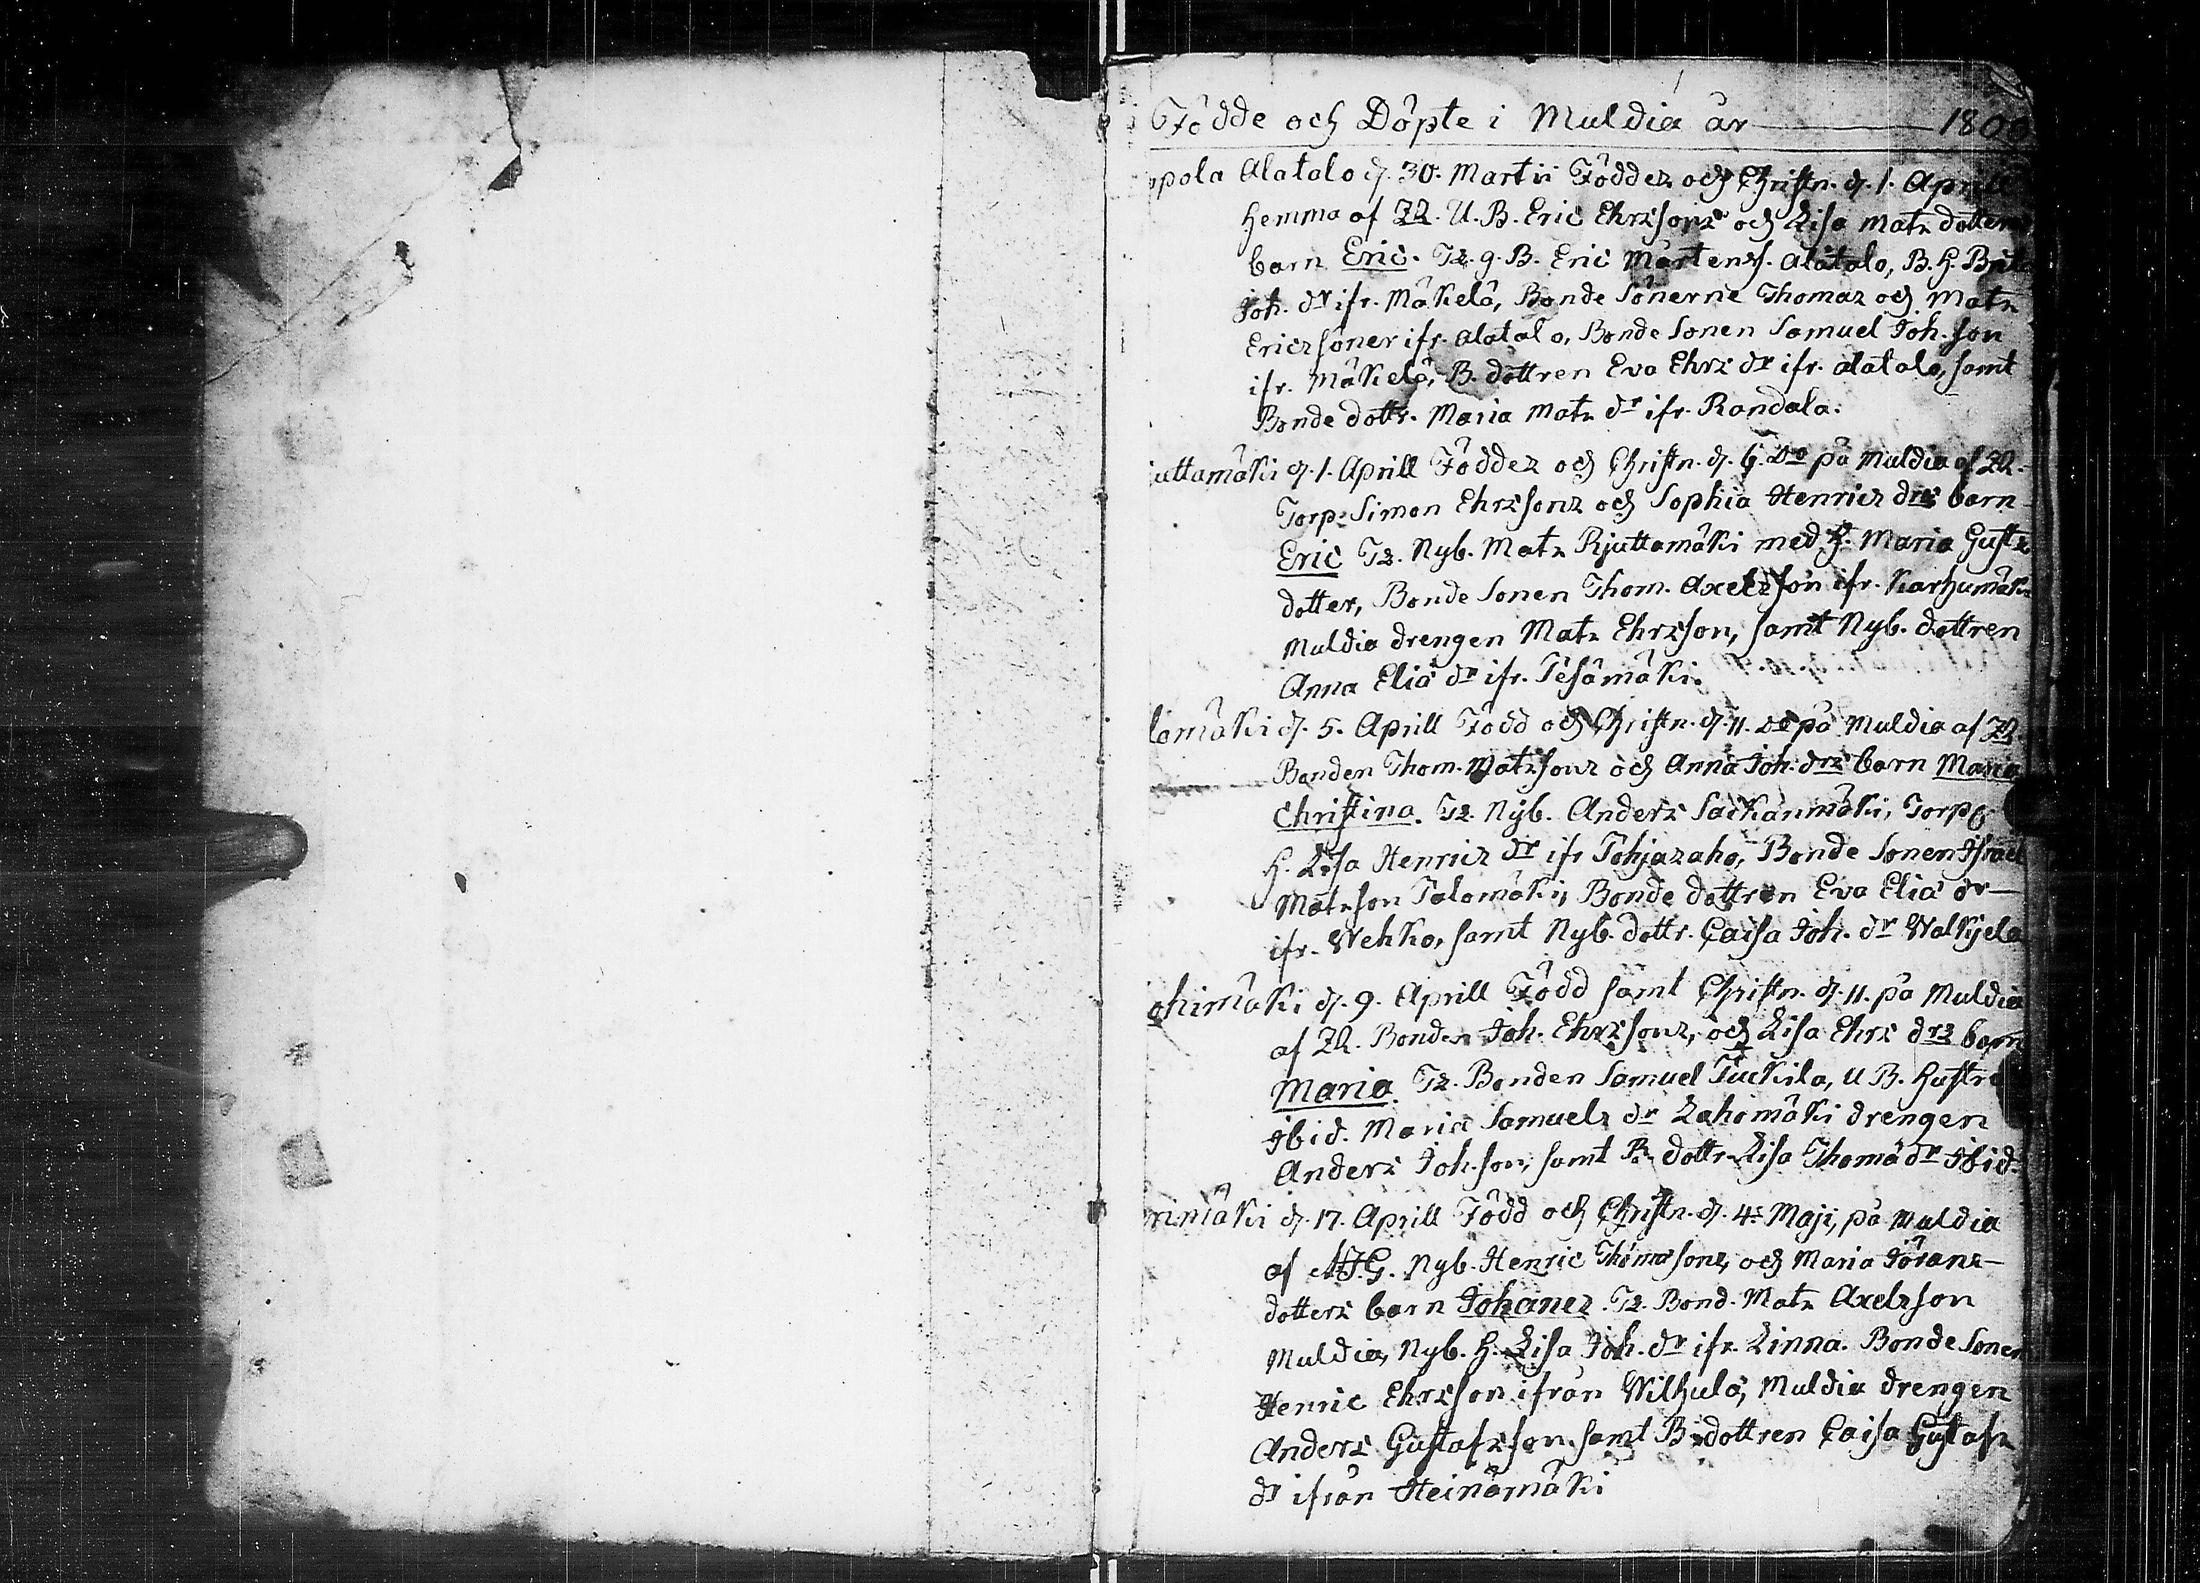 Födde och Döpte i Muldia år 1800
pola Alatalo d. 30. Martii Föddes och Christn. d. 1. Aprill
hemma af ZR. U. B. Eric Ehrssons och Lisa Mats dotters
barn Eric. Ts. g. B. Eric Mårtenss. Alatalo, B. h. Brit
Joh. dr ifr. Mäkelä, Bonde Sönerne Thomas och Mats
Ericssöner ifr. Alatalo, Bonde Sonen Samuel Joh. son
ifr. Mäkelä, B. dottren Eva Ehrs dr ifr. Alatalo, samt
Bonde dottr. Maria Mats dr ifr. Randala.
uttamäki d. 1. Aprill Föddes och Christn. d. 6. Do på Muldia af ZR.
Torp. Simon Ehrssons och Sophia Henrics drs barn
Eric Ts. Nyb. Mats Rjuttamäki med h. Maria Gusts
dotter, Bonde Sonen Thom. Axelsson ifr. Karhumäki
Muldia drengen Mats Ehrsson, samt Nyb. dottren
Anna Eliæ dr ifr. Tesämäki.
lomäki d. 5. Aprill Född och Christn. d. 11. Do på Muldia af ZR.
Bonden Thom. Matssons och Anna Joh. drs barn Maria
Christina. Ts. Nyb. Anders Saikanmäki, Torp.
h. Lisa Henrics dr ifr Tohjasaho, Bonde Sonen Israel
Matsson Talomäki, Bonde dottren Eva Eliæ dr
ifr. Wehko, samt Nyb. dottr. Caisa Joh. dr Walkjela
ohimäki d. 9. Aprill Född samt Christn. d. 11. på Muldia
af ZR. Bonden Joh. Ehrssons, och Lisa Ehrs drs barn
Maria. Ts. Bonden Samuel Tuckila, U B. hustru
Ibid. Maria Samuels dr Lahomäki drengen
Anders Joh. son, samt B. dottr. Lisa Thomæ dr Ibid.
rimäki d. 17. Aprill Född och Christn. d. 4. Maji, på Muldia
af Nyb. Henric Thomæsons, och Maria Jörans
dotters barn Johanes. Ts. Bond. Mats Axelsson
Muldia, Nyb. h. Lisa Joh. dr ifr. Linna. Bonde Sonen
Henric Ehrsson ifrån Wilhula, Muldia drengen
Anders Gustafsson samt B. dottren Caisa Gustafs
dr ifrån Heinämäki